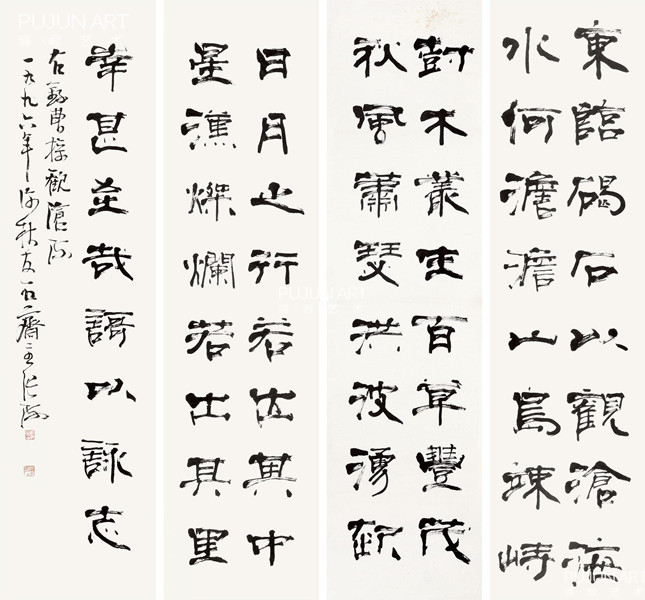 東臨碣石以觀滄海
水何澹澹山島竦峙
樹木叢生百草豐茂
秋風蕭瑟洪波湧起
日月之行若出其中
星漢燦爛若出其里
幸甚至哉謌以詠志
右錄曹操觀滄海
一九九六年秋友石齋主張海
PUJUN ART
PUJUN ART
PUJUN ART